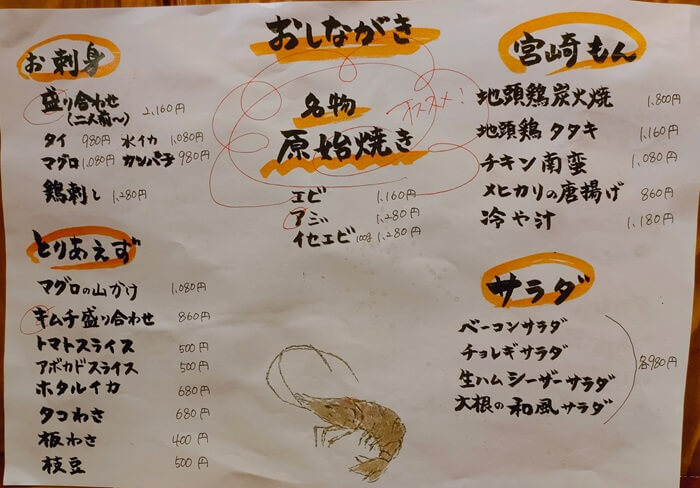 おしながき
お刺身
盛り合わせ
(二人前〜) 2,160円
タイ 980円 水イカ 1,080円
マグロ 1,080円 カンパチ 980円
鶏刺し 1,280円
とりあえず
マグロの山かけ 1,080円
キムチ盛り合わせ 860円
トマトスライス 500円
アボカドスライス 500円
ホタルイカ 680円
タコわさ 680円
板わさ 400円
枝豆 500円
名物
オススメ!
原始焼き
エビ 1,160円
アジ 1,280円
イセエビ 100g 1,280円
宮崎もん
地頭鶏炭火焼 1,800円
地頭鶏タタキ 1,160円
チキン南蛮 1,080円
メヒカリの唐揚げ 860円
冷や汁 1,180円
サラダ
ベーコンサラダ
チョレギサラダ
生ハムシーザーサラダ
大根の和風サラダ
各980円